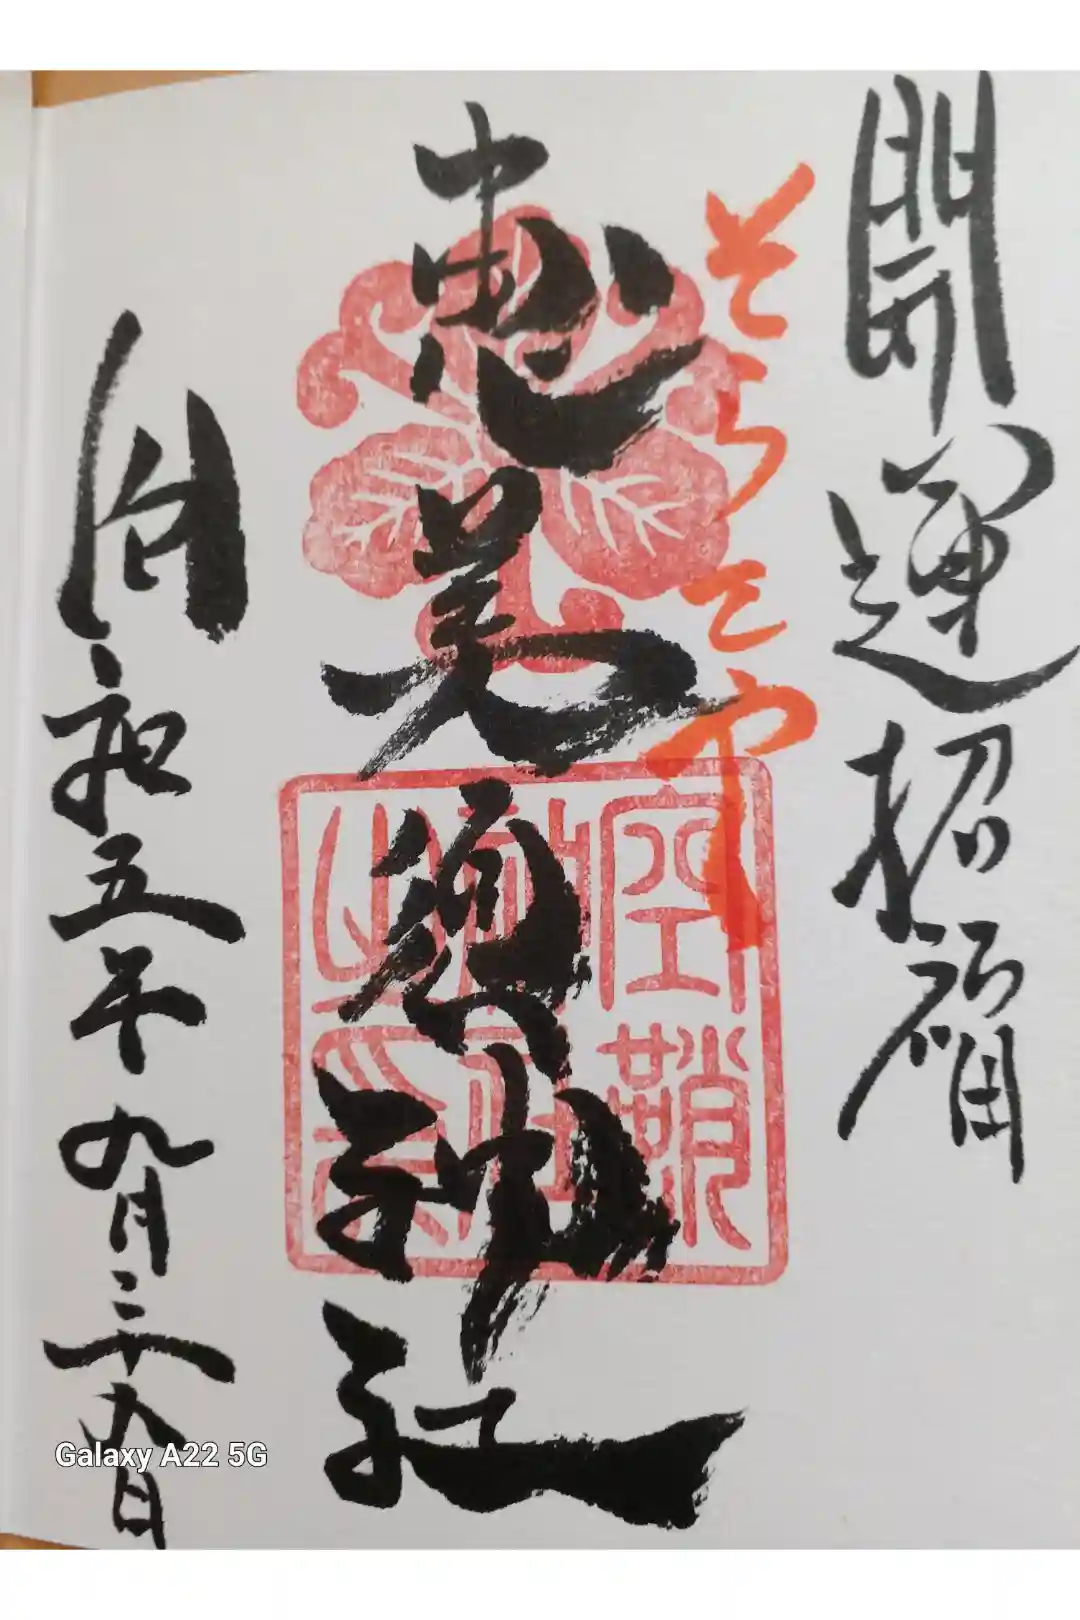 開運招福
そらさや
恵美須神社
空鞘
神社
之印
令和五年九月二十八日
Galaxy A22 5G